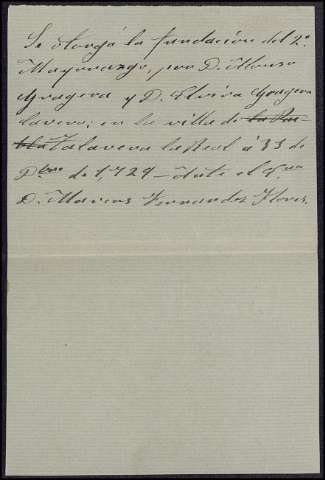 Se otorgó la fundación del 2º
Mayorazgo, por D. Alonso
Gragera y D. Elvira Gragera
en la villa de la Pue-
bla Talavera la Real á 23 de
de 1.729 – ante el
D. Marcos Fernandez Flores.